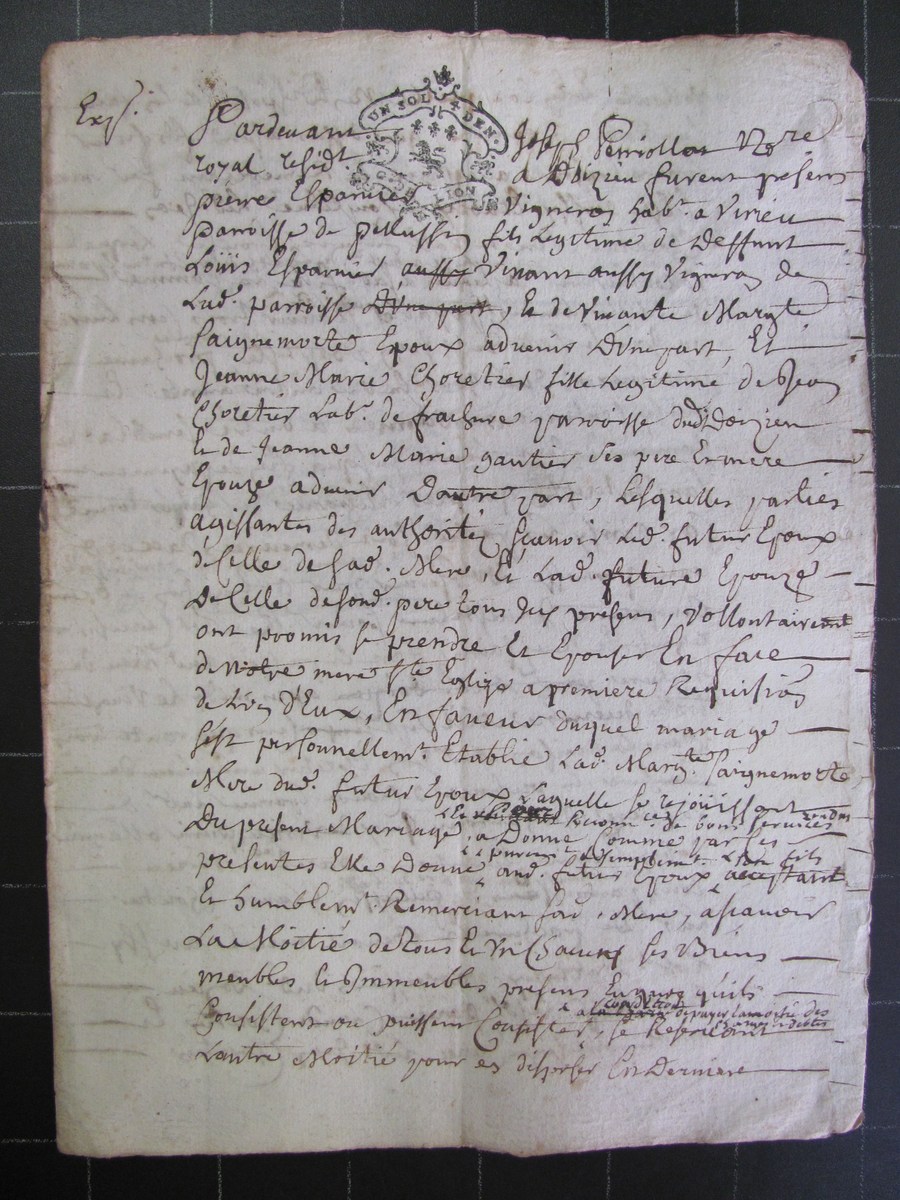 Exp.
UN SOL 4 DEN.
Pardevant Joseph Perriollat No.re
royal resid.t a Doizieu furent présens
pierre Esparvier Vigneron hab.t a Virieu
parroisse de pellussin fils Legitime de Deffunt
Loüis Esparvier aussy Vivant aussy Vigneron de
Lad. parroisse D'une part, Et de Vivante Marg.te
Saignemorte Epoux advenir D'une part, Et
Jeanne Marie Choretier fille Legitime de Jean
Choretier Lab.r de parroisse dud. Doizieu
Et de Jeanne Marie gautier ses pere Et mere
Epouze advenir D'autre part, Lesquelles parties
agissantes des authorités sçavoir Led. futur Epoux
de Celle de sad. Mere, Et Lad. future Epouze
de Celle de sond. pere tous deux présens, Vollontairem.t
ont promis se prendre Et Epouser En face
de Notre mere S.te Eglize a premiere Requisi.on
de L'un D'Eux, En faveur duquel mariage
s'est personnellem.t Etablie Lad. Marg.te Saignemorte
Mere dud. futur Epoux Laquelle se rejoüissant
de bons services rendus
Du présent Mariage, a Donné Comme par Ses
purem.t & simplem.t son fils
présentes Elle Donne aud. futur Epoux acceptant
Et humblem.t Remerciant sad. Mere, a scavoir
La Moitié de tous Et Un Chacuns ses Biens
meubles Et Immeubles présens En quoy qu'ils
a la condition de payer la moitié des
Consistent ou puissent Consister, se Reservant
L'autre Moitié pour en disposer En Derniere